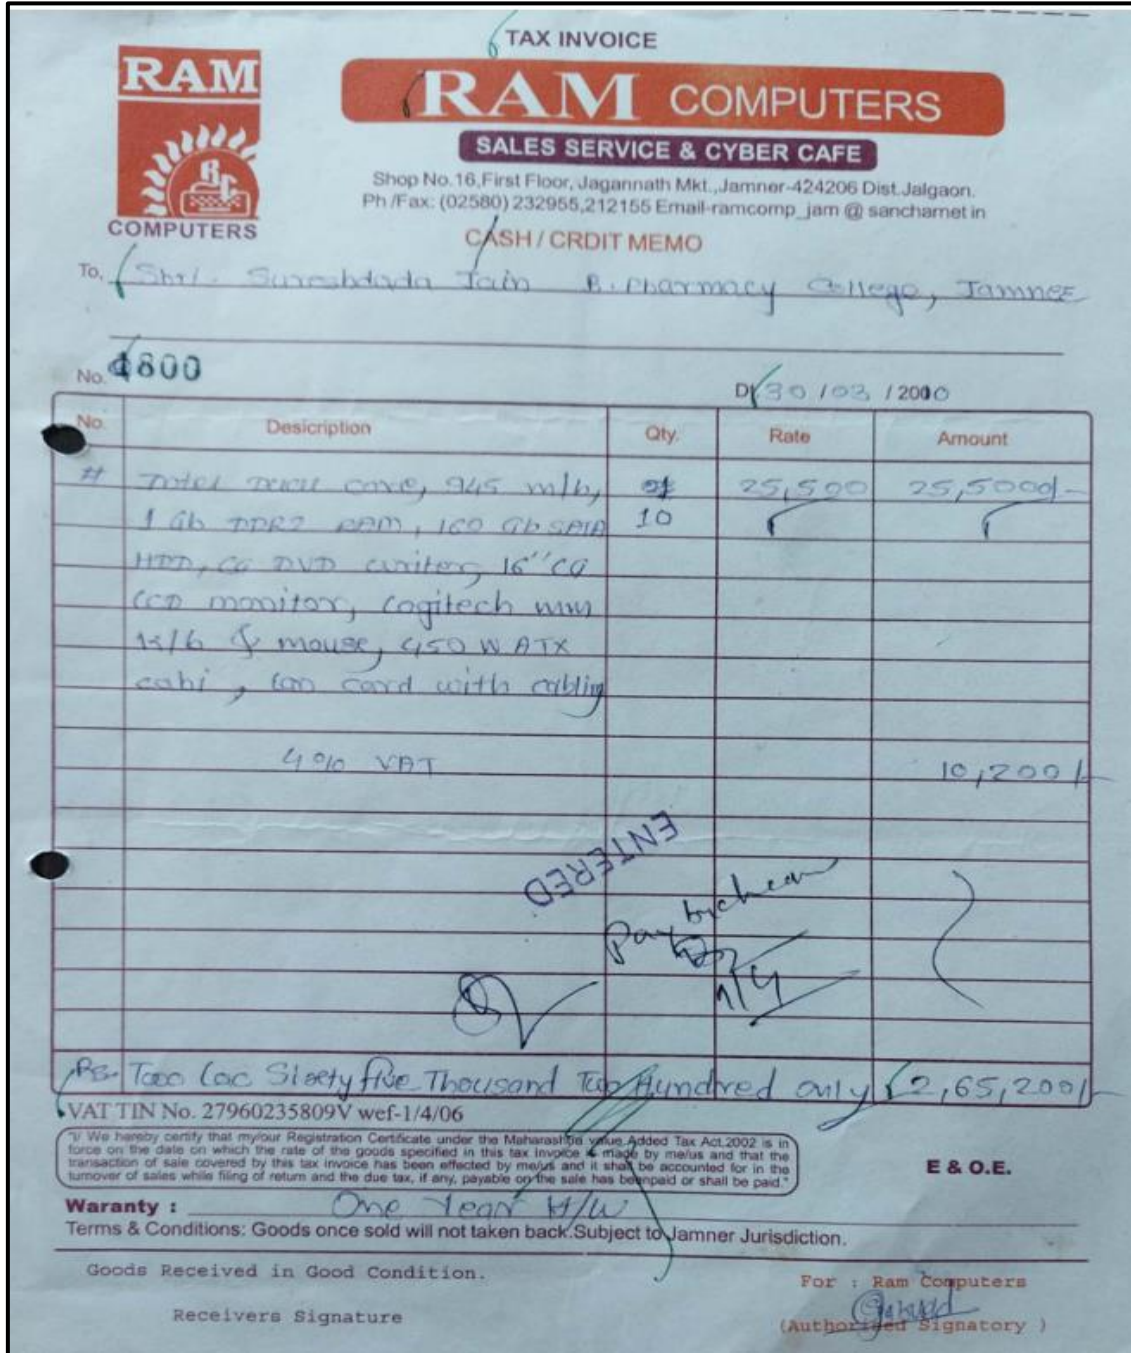 TAX INVOICE
RAM
COMPUTERS
RAM COMPUTERS
SALES SERVICE & CYBER CAFE
Shop No.16,First Floor, Jagannath Mkt.,Jamner-424206 Dist.Jalgaon.
Ph /Fax: (02580) 232955,212155 Email-ramcomp_jam @ sancharnet in
CASH / CRDIT MEMO
To, Shri. Sureshdada Jain B. Pharmacy College, Jamner
No. 4800
Dt 30 / 03 / 2010
No. Desicription Qty. Rate Amount
# Intel Dual core, 945 m/b, 25,500 25,5000/-
1 Gb DDR2 RAM, 160 Gb SATA 10
HDD, LG DVD writer, 16" LG
LCD monitor, Logitech mm
k/b & mouse, 450 W ATX
cabi, lan card with cabling
4% VAT 10,200/-
ENTERED
Pay by
Rs. Two Lac Sixty five Thousand Two Hundred only 2,65,200/-
VAT TIN No. 27960235809V wef-1/4/06
"I/ We hereby certify that my/our Registration Certificate under the Maharashtra value Added Tax Act.2002 is in
force on the date on which the rate of the goods specified in this tax Invoice is made by me/us and that the
transaction of sale covered by this tax invoice has been effected by me/us and it shall be accounted for in the
turnover of sales while filing of return and the due tax, if any, payable on the sale has beenpaid or shall be paid."
E & O.E.
Waranty : One Year H/W
Terms & Conditions: Goods once sold will not taken back.Subject to Jamner Jurisdiction.
Goods Received in Good Condition.
For : Ram Computers
Receivers Signature
(Authorised Signatory )